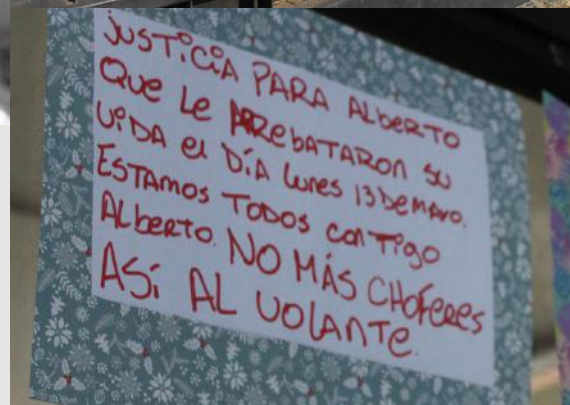 JUSTICIA PARA ALBERTO
QUE LE ARREBATARON SU
VIDA EL DÍA LUNES 13 DE MAYO.
ESTAMOS TODOS CONTIGO
ALBERTO. NO MÁS CHOFERES
ASÍ AL VOLANTE.